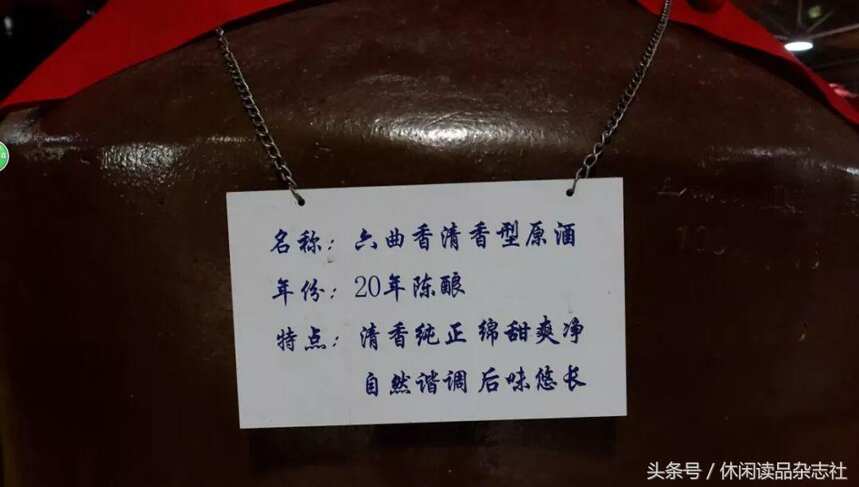 名称：六曲香清香型原酒
年份：20年陈酿
特点：清香纯正 绵甜爽净
自然谐调 后味悠长
头条号 / 休闲读品杂志社